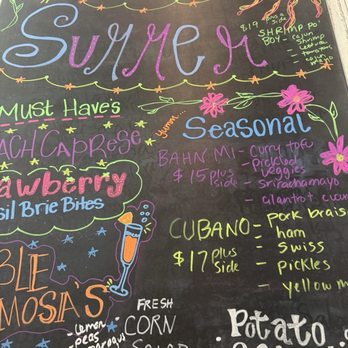 Summer
$19 plus side
SHRIMP PO'
BOY - cajun
shrimp
- lettuce
- tomatoes
- cajun
mayo
Must Haves
ACH CAPRESE
awberry
sil Brie Bites
BLE
MOSA'S
Yumm.
Seasonal
BAHN MI - curry tofu
$15 plus side
- pickled veggies
- srirachamayo
- cilantro + cucu
CUBANO = pork brais
$17 plus side
- ham
- swiss
- pickles
- yellow m
FRESH
CORN
SALAD
- Lemon
- Peas
Potato